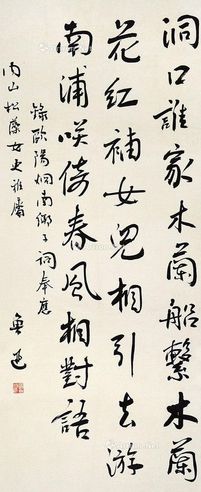 洞口誰家木蘭船繫木蘭
花紅袖女兒相引去游
南浦咲倚春風相對語
錄歐陽炯南鄉子詞奉應
內山松藻女史雅屬
魯迅